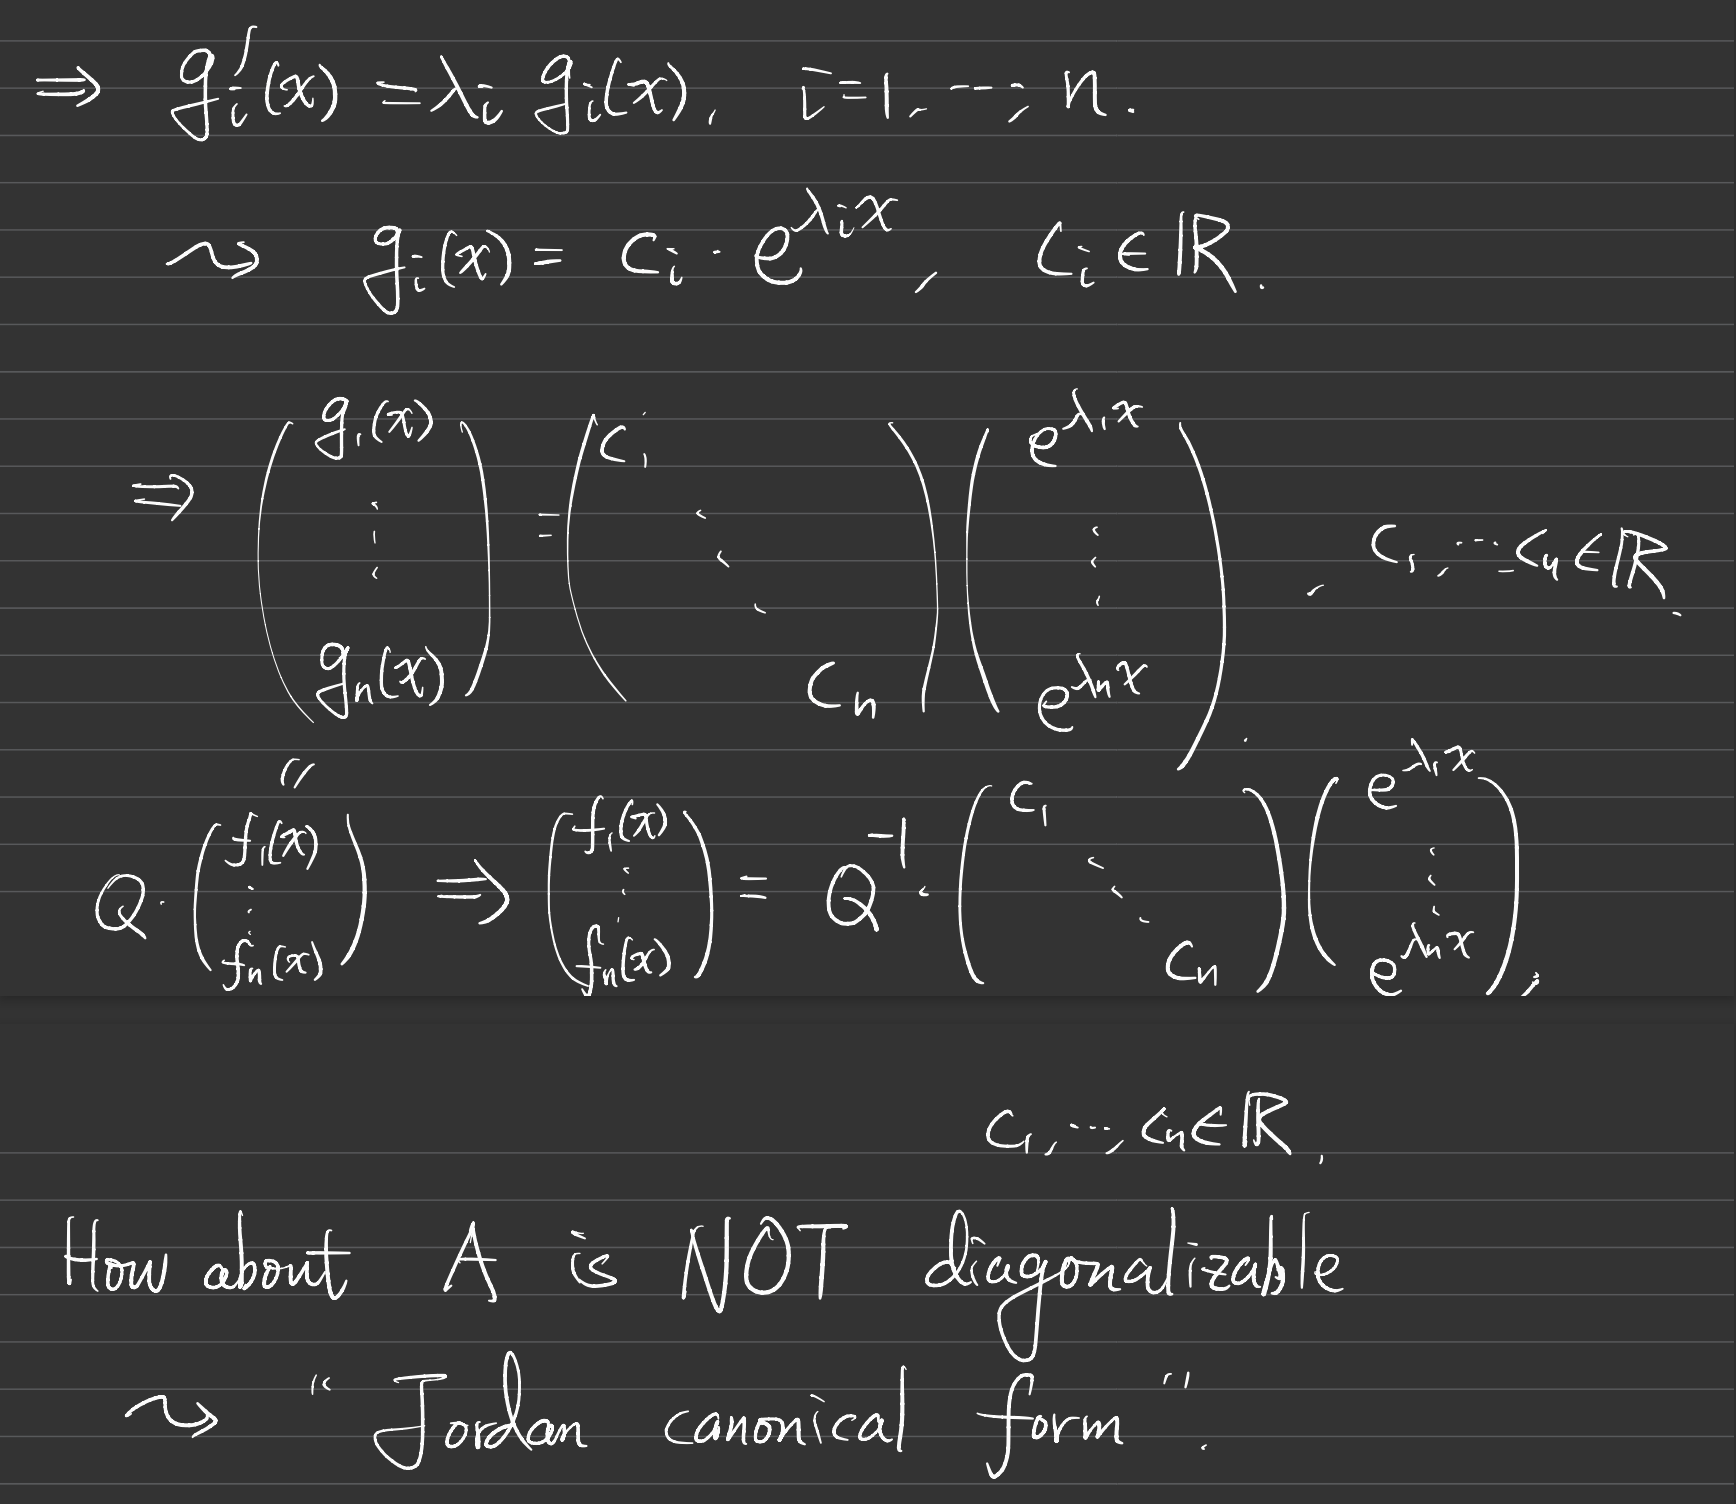 ⇒ g_i'(x) = λ_i g_i(x), i=1, ⋯, n.
⇝ g_i(x) = c_i · e^{λ_i x}, c_i ∈ ℝ.
⇒ (g_1(x) ⋮ g_n(x)) = (c_1 ⋱ c_n) (e^{λ_1 x} ⋮ e^{λ_n x}), c_1, ⋯, c_n ∈ ℝ.
〃
Q · (f_1(x) ⋮ f_n(x)) ⇒ (f_1(x) ⋮ f_n(x)) = Q^{-1} · (c_1 ⋱ c_n) (e^{λ_1 x} ⋮ e^{λ_n x}),
c_1, ⋯, c_n ∈ ℝ.
How about A is NOT diagonalizable
⇝ "Jordan canonical form".